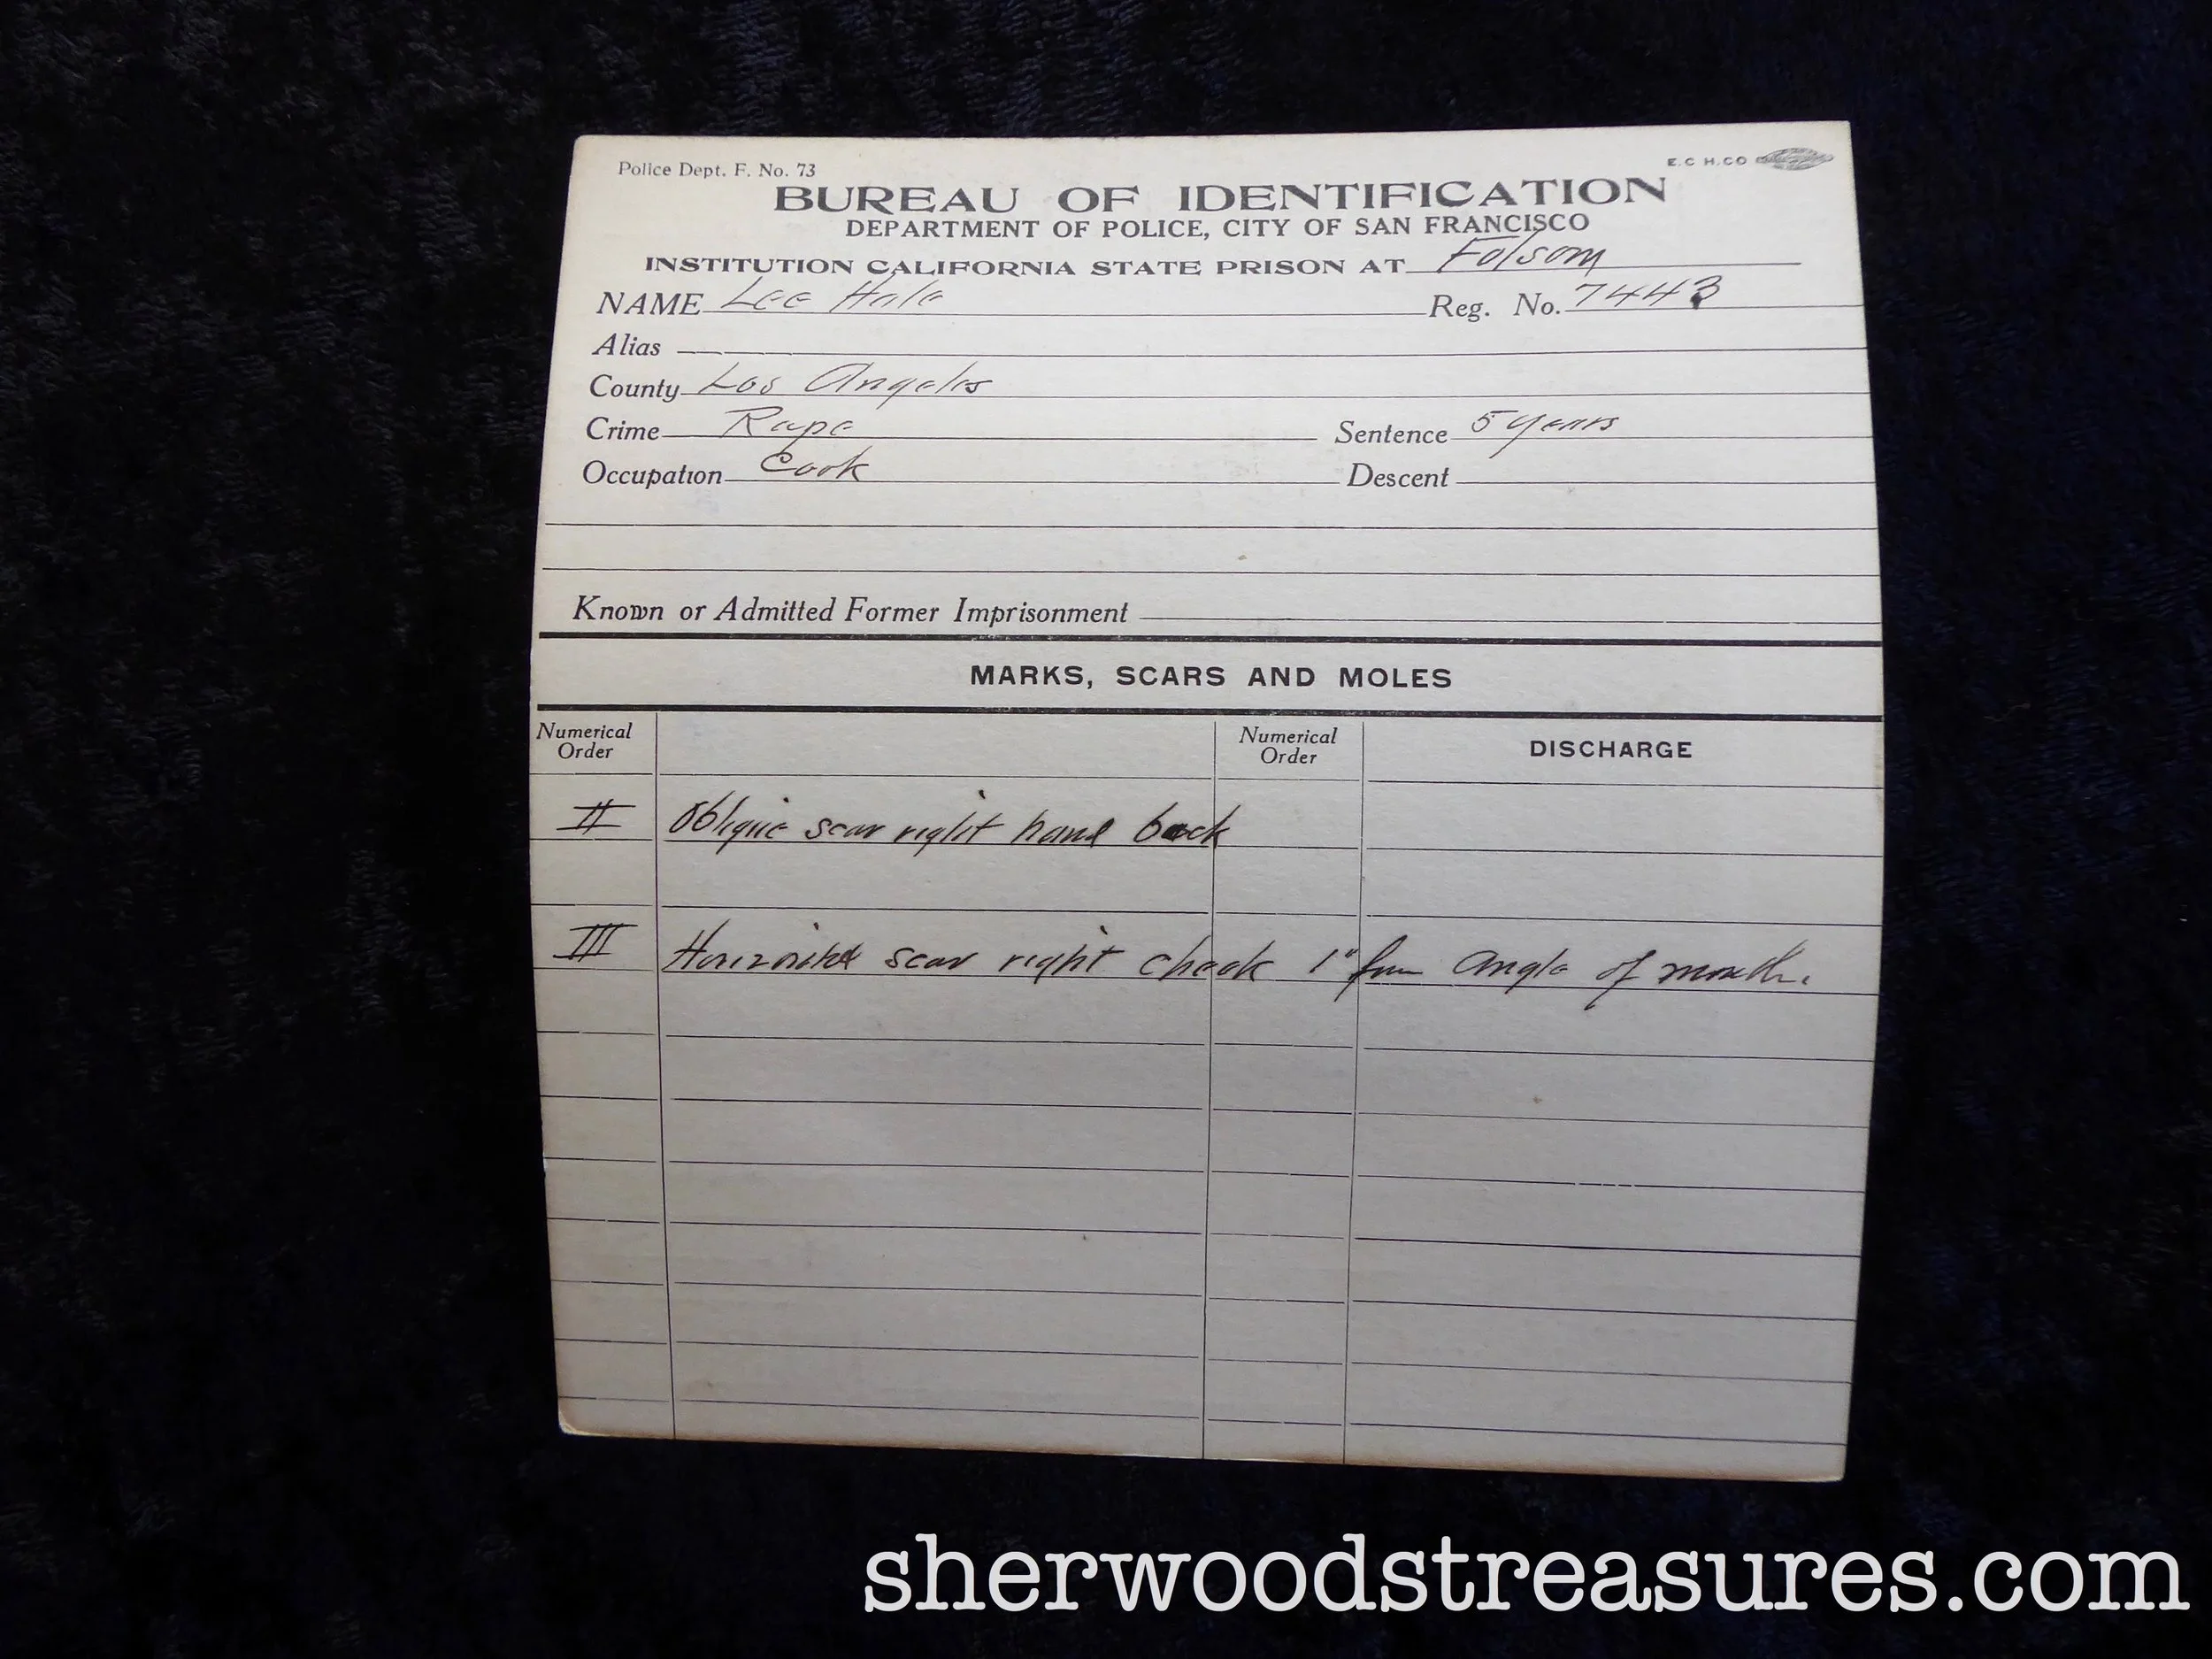 Police Dept. F. No. 73
E.C H.CO
BUREAU OF IDENTIFICATION
DEPARTMENT OF POLICE, CITY OF SAN FRANCISCO
INSTITUTION CALIFORNIA STATE PRISON AT Folsom
NAME Lee Hale Reg. No. 7443
Alias
County Los Angeles
Crime Rape Sentence 5 years
Occupation Cook Descent
Known or Admitted Former Imprisonment
MARKS, SCARS AND MOLES
Numerical Order Numerical Order DISCHARGE
II Oblique scar right hand back
III Horizontal scar right cheek 1" from angle of mouth.
sherwoodstreasures.com